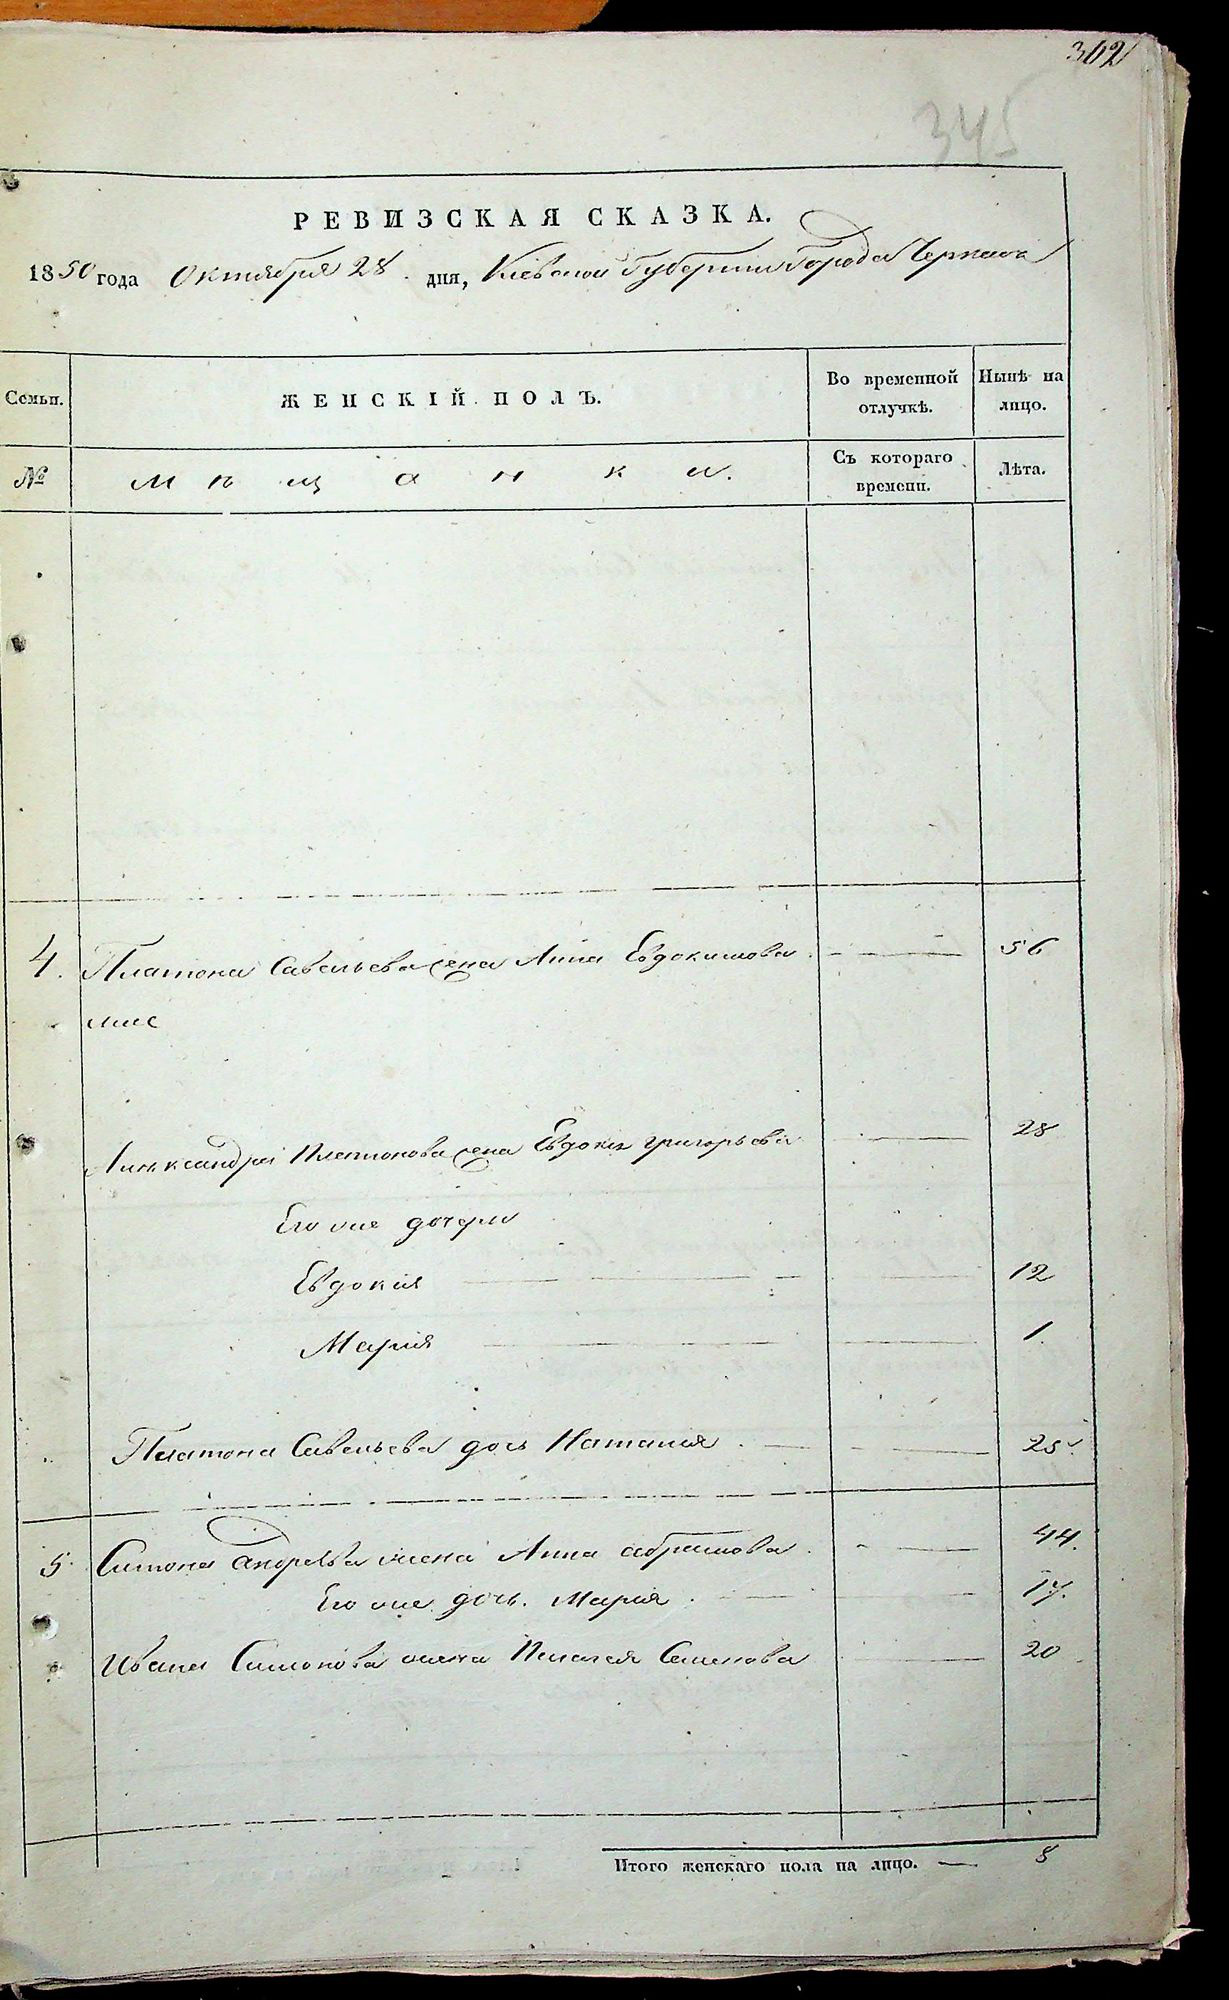 302
345
РЕВИЗСКАЯ СКАЗКА.
1850 года Октября 28 дня, Киевской Губернии Города Черкаса
Семьи. ЖЕНСКІЙ ПОЛЪ. Во временной отлучкѣ. Нынѣ на лицо.
№ мѣщанки. Съ котораго времени. Лѣта.
4. Платона Савельева жена Анна Евдокимова 56
Александра Платонова жена Евдокия Григорьева 28
Его же дочери
Евдокия 12
Мария 1
Платона Савельева дочь Наталия 25
5 Симона Андреева жена Анна Абрамова 44.
Его же дочь Мария 17.
Ивана Симонова жена Пелагея Семенова 20
Итого женскаго пола на лицо. — 8